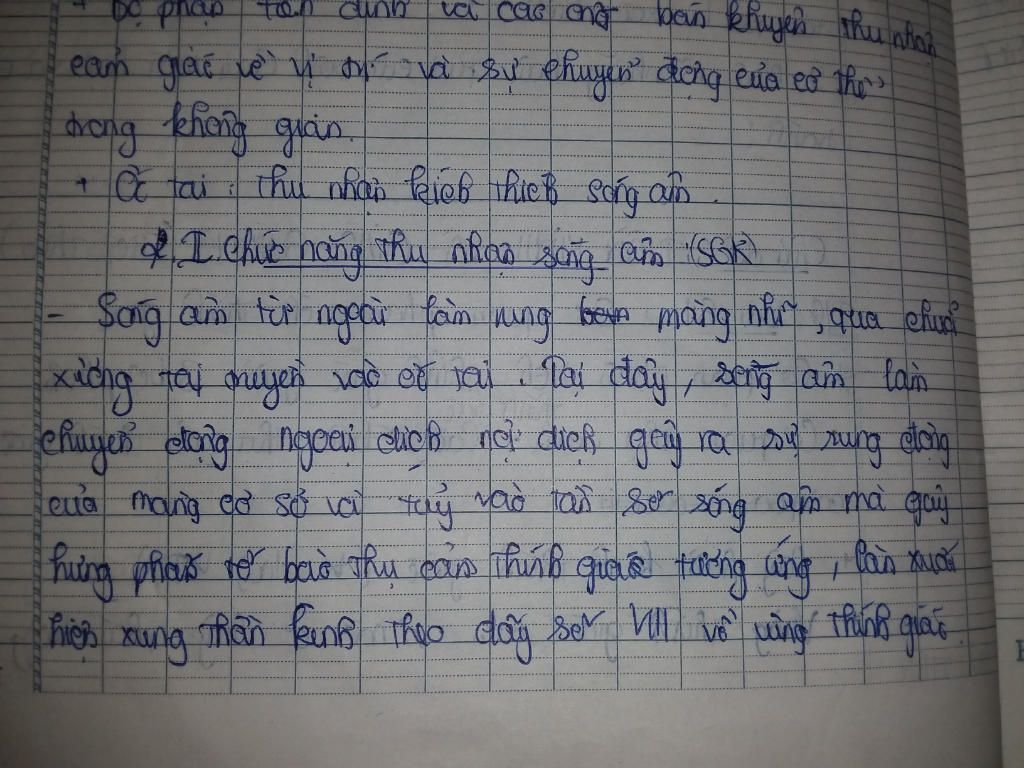 + Bộ phận tiền đình và các ống bán khuyên thu nhận
cảm giác về vị trí và sự chuyển động của cơ thể
trong không gian.
+ Ốc tai : thu nhận kích thích sóng âm.
I. Chức năng thu nhận sóng âm (SGK)
- Sóng âm từ ngoài làm rung màng nhĩ, qua chuỗi
xương tai truyền vào ốc tai. Tại đây, sóng âm làm
chuyển động ngoại dịch nội dịch gây ra sự rung động
của màng cơ sở và tuỳ vào tần số sóng âm mà gây
hưng phấn tế bào thụ cảm thính giác tương ứng, làm xuất
hiện xung thần kinh theo dây số VIII về vùng thính giác